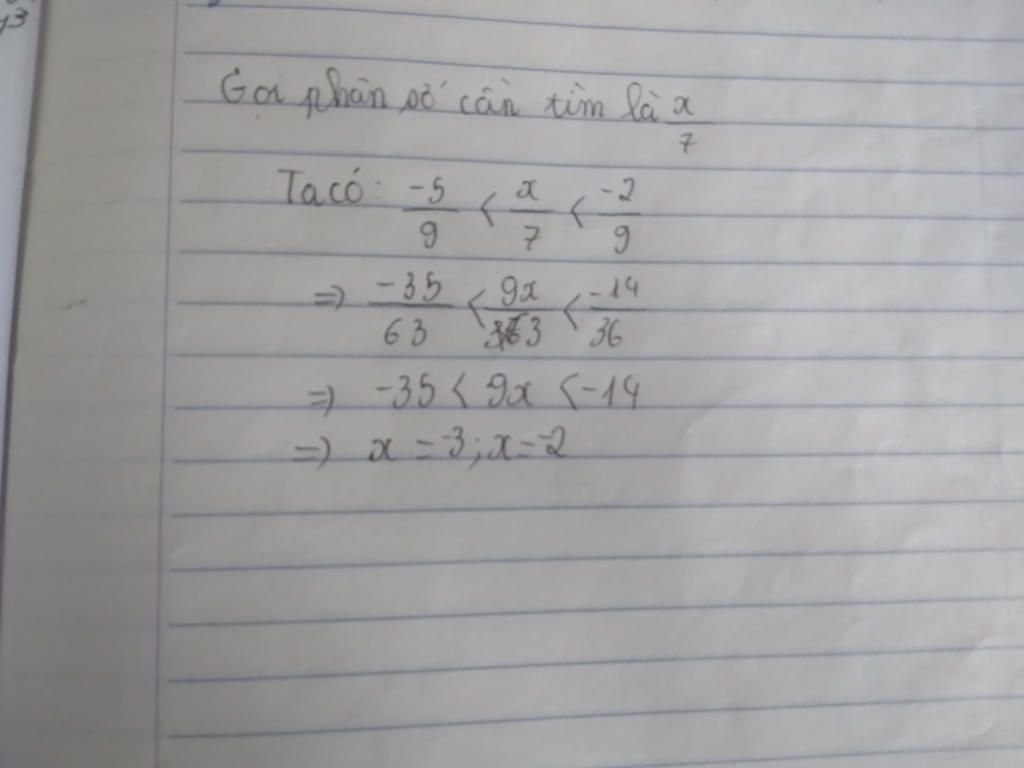 y3
Gọi phân số cần tìm là x/7
Ta có: -5/9 < x/7 < -2/9
=> -35/63 < 9x/63 < -14/36
=> -35 < 9x < -14
=> x = -3; x = -2